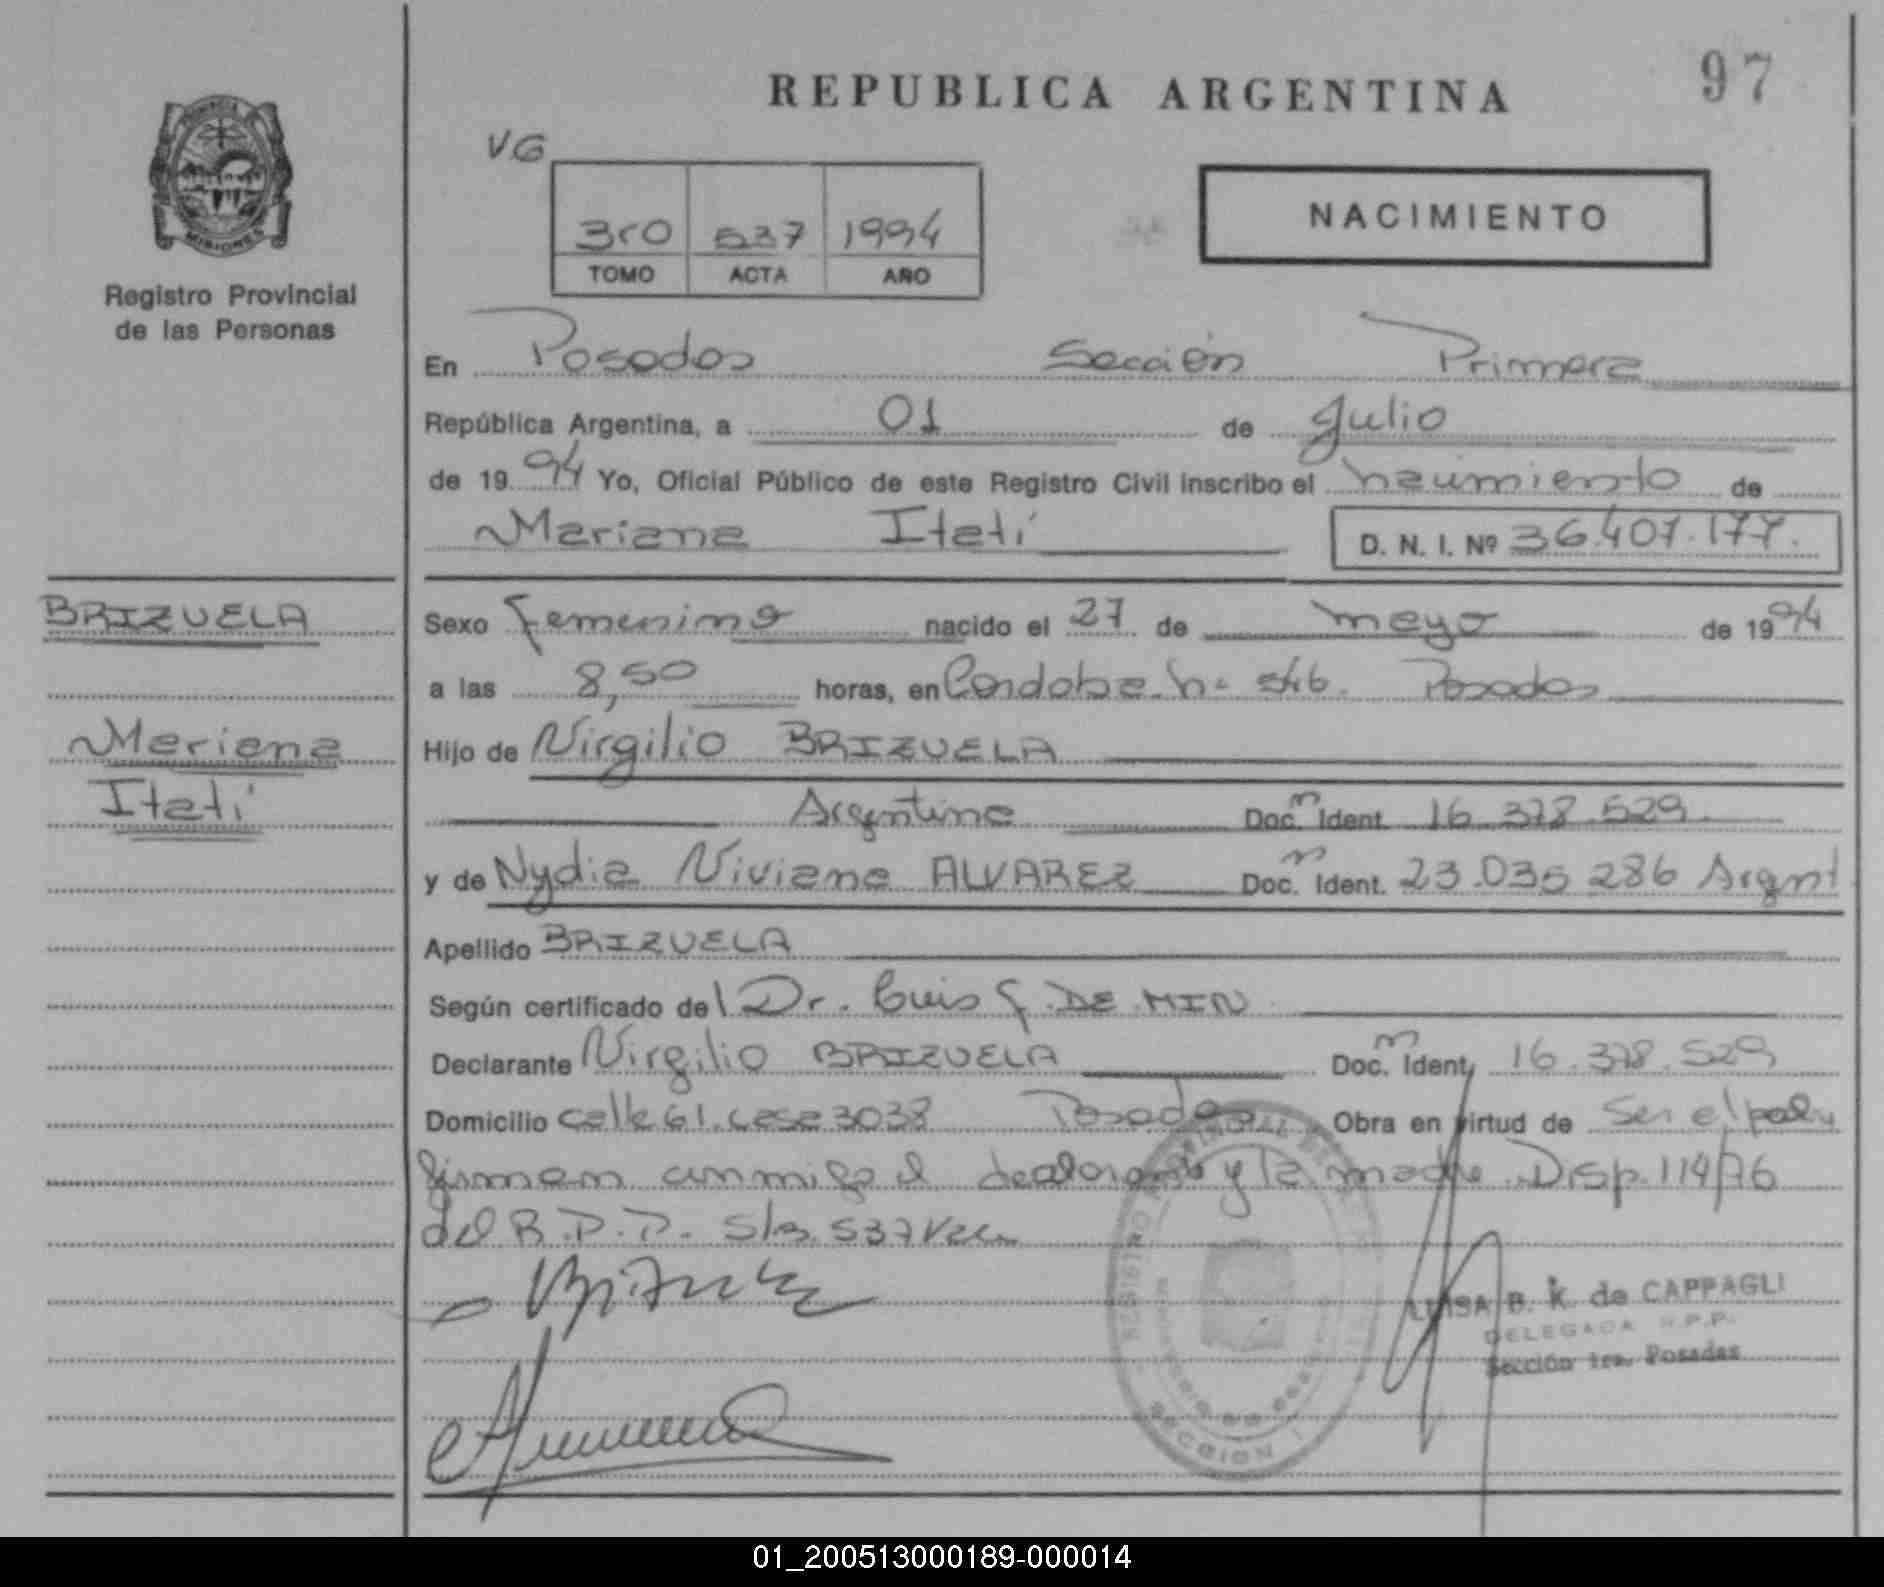 REPUBLICA ARGENTINA
97
VG
NACIMIENTO
3ro 537 1994
TOMO ACTA AÑO
PROVINCIA
MISIONES
Registro Provincial
de las Personas
En Posadas Sección Primera
República Argentina, a 01 de Julio
de 1994 Yo, Oficial Público de este Registro Civil inscribo el nacimiento de
Mariana Itatí
D. N. I. Nº 36.407.177.
BRIZUELA
Mariana
Itatí
Sexo femenino nacido el 27 de mayo de 1994
a las 8,50 horas, en Cordoba nº 546. Posadas
Hijo de Virgilio BRIZUELA
Argentino Doc. m Ident. 16.378.529.
y de Nydia Viviana ALVAREZ Doc. m Ident. 23.035.286 Argent
Apellido BRIZUELA
Según certificado del Dr. Luis DE MIN
Declarante Virgilio BRIZUELA Doc. m Ident. 16.378.529
Domicilio calle 61 casa 3038 Posadas Obra en virtud de Ser el padre
firman conmigo el declarante y la madre Disp. 114/76
del R.P.P. 537
LUISA B. K. de CAPPAGLI
DELEGADA R.P.P.
Sección 1ra. Posadas
REGISTRO PROVINCIAL DE LAS
SECCION 1
01_200513000189-000014